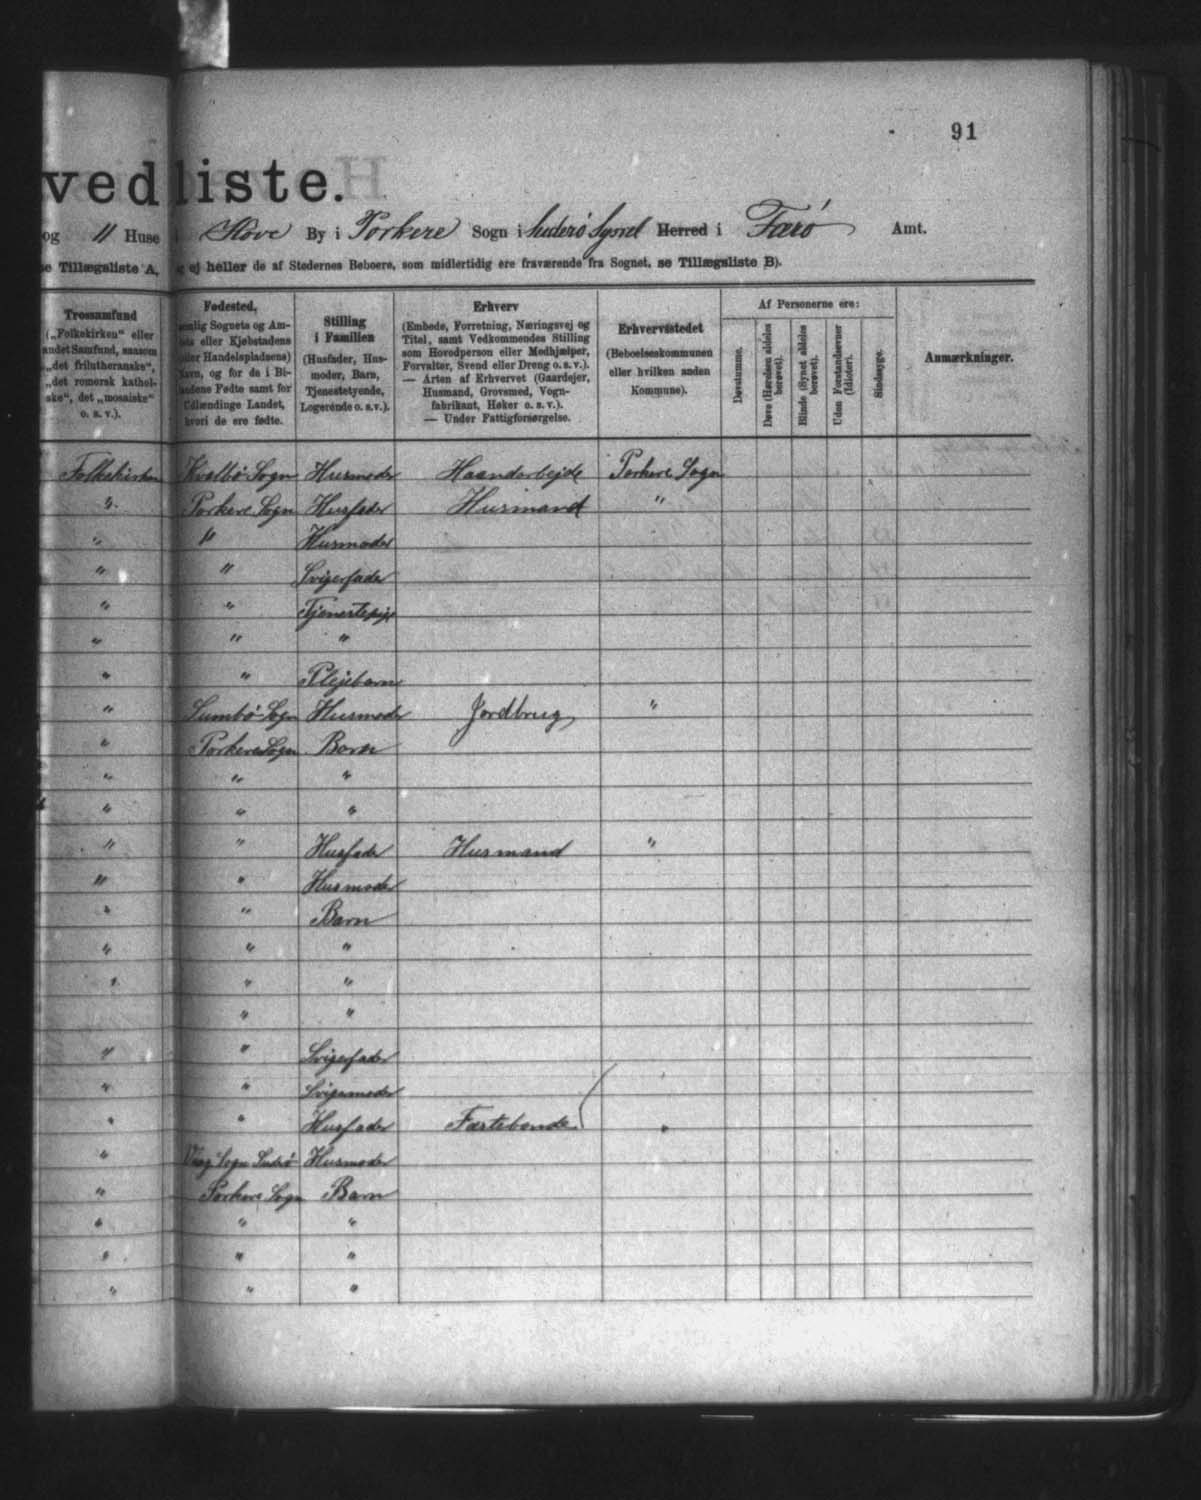 91
vedliste.
og 11 Huse i Hove By i Porkere Sogn i Suderø Syssel Herred i Færø Amt.
se Tillægsliste A, og ej heller de af Stedernes Beboere, som midlertidig ere fraværende fra Sognet, se Tillægsliste B).
Trossamfund
(„Folkekirken“ eller
andet Samfund, saasom
„det frilutheranske“,
„det romersk kathol-
ske“, det „mosaiske“
o. s. v.).
Fødested,
nemlig Sognets og Am-
tets eller Kjøbstadens
(eller Handelspladsens)
Navn, og for de i Bi-
landene Fødte samt for
Udlændinge Landet,
hvori de ere fødte.
Stilling
i Familien
(Husfader, Hus-
moder, Barn,
Tjenestetyende,
Logerende o. s. v.).
Erhverv
(Embede, Forretning, Næringsvej og
Titel, samt Vedkommendes Stilling
som Hovedperson eller Medhjælper,
Forvalter, Svend eller Dreng o. s. v.).
— Arten af Erhvervet (Gaardejer,
Husmand, Grovsmed, Vogn-
fabrikant, Høker o. s. v.).
— Under Fattigforsørgelse.
Erhvervsstedet
(Beboelseskommunen
eller hvilken anden
Kommune).
Af Personerne ere:
Døvstumme.
Døve (Hørelsen aldeles
berøvet).
Blinde (Synet aldeles
berøvet).
Uden Forstandsevner
(Idioter).
Sindssyge.
Anmærkninger.
Folkekirken Kvalbø Sogn Husmoder Haandarbejde Porkere Sogn
" Porkere Sogn Husfader Husmand "
" " Husmoder
" " Svigerfader
" " Tjenestepige
" " "
" " Plejebarn
" Sumbø Sogn Husmoder Jordbrug "
" Porkere Sogn Barn
" " "
" " "
" " Husfader Husmand "
" " Husmoder
" " Barn
" " "
" " "
" " "
" " Svigerfader
" " Svigermoder
" " Husfader Fæstebonde "
" Vaag Sogn Suderø Husmoder
" Porkere Sogn Barn
" " "
" " "
" " "